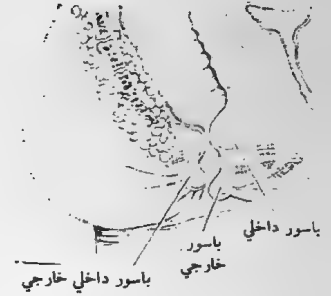 باسور داخلي
باسور
خارجي
باسور داخلي خارجي